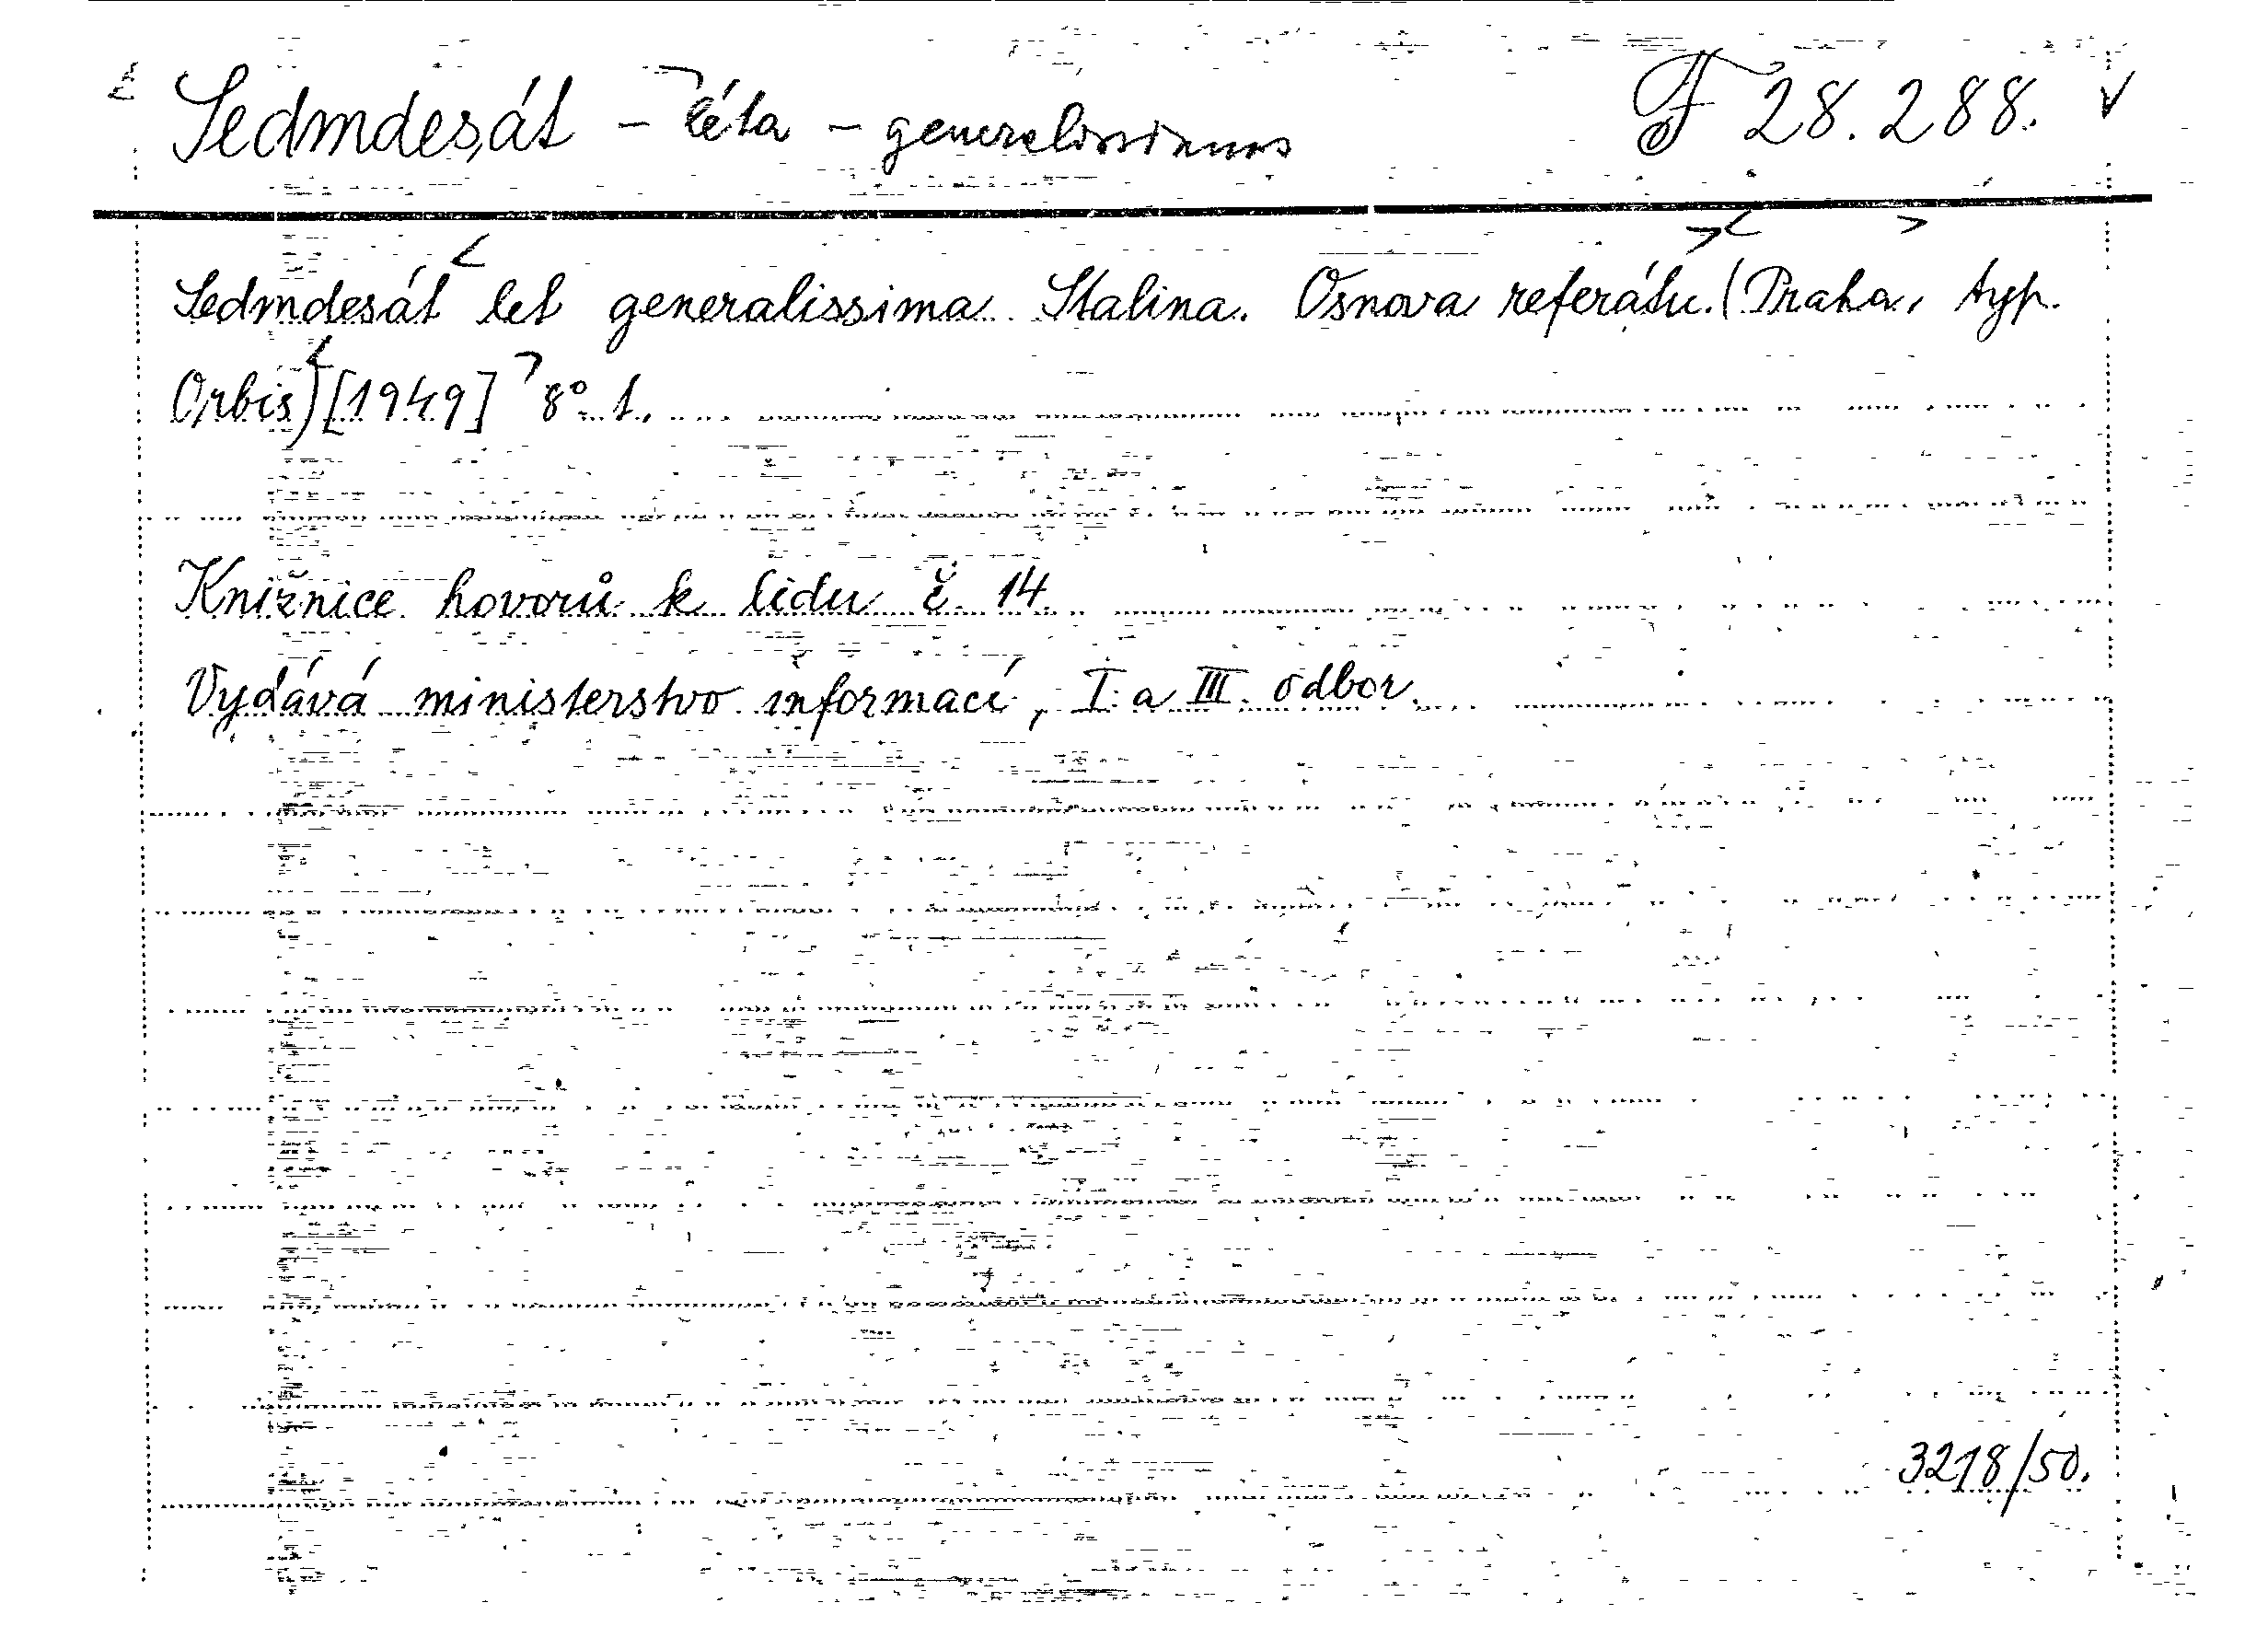 Sedmdesát - léta - generalissimus F 28.288.
Sedmdesát let generalissima Stalina. Osnova referátu. (Praha, typ.
Orbis) [1949] 8° 1.
Knižnice hovorů k lidu č. 14
Vydává ministerstvo informací, I. a III. odbor.
3218/50.